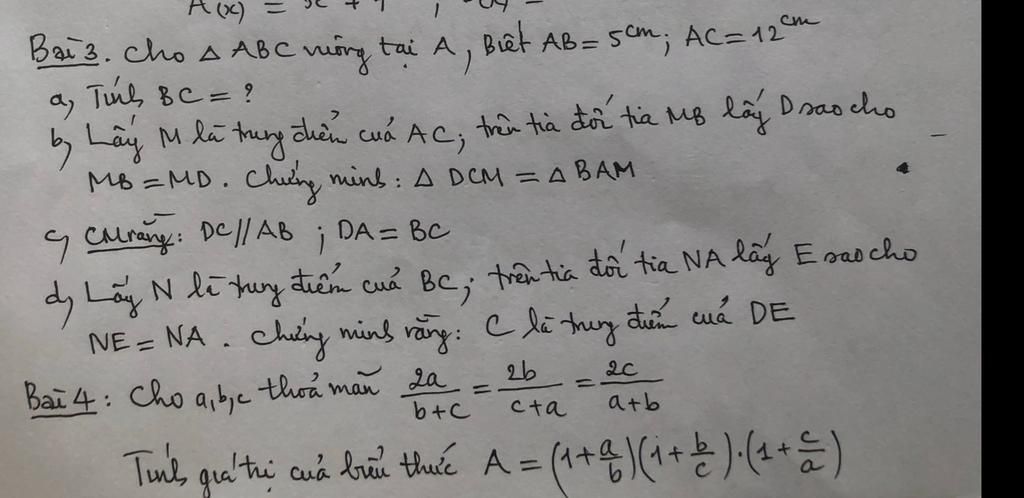 A(x) =
Bài 3. Cho △ ABC vuông tại A, Biết AB = 5cm; AC = 12cm
a, Tính BC = ?
b, Lấy M là trung điểm của AC; trên tia đối tia MB lấy D sao cho
MB = MD. Chứng minh: △ DCM = △ BAM
c, CM rằng: DC // AB ; DA = BC
d, Lấy N là trung điểm của BC; trên tia đối tia NA lấy E sao cho
NE = NA. Chứng minh rằng: C là trung điểm của DE
Bài 4: Cho a,b,c thoả mãn 2a/(b+c) = 2b/(c+a) = 2c/(a+b)
Tính giá trị của biểu thức A = (1+a/b)(1+b/c).(1+c/a)